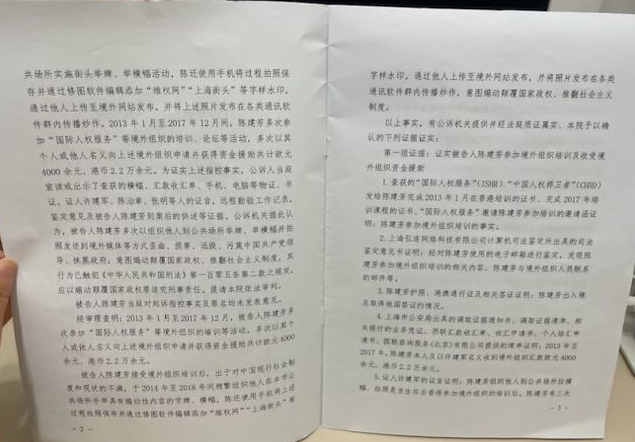 共场所实施街头举牌、举横幅活动，陈还使用手机将过程拍照保
存并通过修图软件编辑添加“维权网”“上海街头”等字样水印，
通过他人上传至境外网站发布，并将上述照片发布在各类通讯软
件群内传播炒作。2013年1月至2017年12月间，陈建芳多次参
加“国际人权服务”等境外组织的培训、论坛等活动，多次以其
个人或他人名义向上述境外组织申请并获得资金援助共计欧元
4000余元、港币2.2万余元。为证实上述指控事实，公诉人当庭
宣读或出示了查获的横幅、汇款收汇单、手机、电脑等物证、书
证，证人许建军、陈治章、张明等人的证言，远程勘验工作记录，
鉴定意见及被告人陈建芳到案后的供述等证据。公诉机关据此认
为，被告人陈建芳多次以组织他人到公共场所举牌、举横幅并拍
照发送到境外媒体等方式歪曲、损害、诋毁、污蔑中国共产党领
导、抹黑政府，意图煽动颠覆国家政权、推翻社会主义制度，其
行为已触犯《中华人民共和国刑法》第一百零五条第二款之规定，
应以煽动颠覆国家政权罪追究刑事责任。提请本院依法审判。
被告人陈建芳当庭对起诉指控事实及罪名均未发表意见。
经审理查明：2013年1月至2017年12月，被告人陈建芳多
次参加“国际人权服务”等境外组织的培训等活动，多次以其个
人或他人名义向上述境外组织申请并获得资金援助共计欧元4000
余元、港币2.2万余元。
被告人陈建芳接受境外组织培训后，出于对中国现行社会制
度和现状的不满，于2014年至2018年间频繁组织他人在本市公
共场所手举具有煽动性内容的字牌、横幅，陈还使用手机将上述
过程拍照保存并通过修图软件编辑添加“维权网”“上海街头”等
- 2 -
字样水印，通过他人上传至境外网站发布，并将照片发布在各类
通讯软件群内传播炒作，意图煽动颠覆国家政权、推翻社会主义
制度。
以上事实，有公诉机关提供并经法庭质证属实、本院予以确
认的下列证据证实：
第一组证据：证实被告人陈建芳参加境外组织培训及收受境
外组织资金援助
1.查获的“国际人权服务”(ISHR)、“中国人权捍卫者”(CHRD)
发给陈建芳完成2013年1月在香港培训的证书、完成2017年培
训课程的证书、“国际人权服务”邀请陈建芳参加培训的邀请函证
明：陈建芳参加境外组织培训的事实。
2.上海弘连网络科技有限公司计算机司法鉴定所出具的司法
鉴定意见书证明：经对陈建芳使用的电子邮箱进行鉴定，发现陈
建芳参加境外组织培训的相关内容；陈建芳与境外组织人员联系
的邮件等。
3.陈建芳护照、港澳通行证及相关签证证明：陈建芳出入境
及取得他国签证的情况。
4.上海市公安局出具的调取证据通知书、调取证据清单、相
关银行的业务凭证、西联汇款收汇单、收汇申请书、个人结汇申
请书、西联咨询服务(北京)有限公司提供的清单证明：2013年至
2017年，陈建芳本人及以许建军名义收到境外组织汇款欧元4000
余元、港币2.2万余元。
5.证人许建军的证言证明：陈建芳组织他人到公共场所拉横
幅、拍照是发生在去香港参加境外组织的培训后，陈建芳有三次
- 3 -